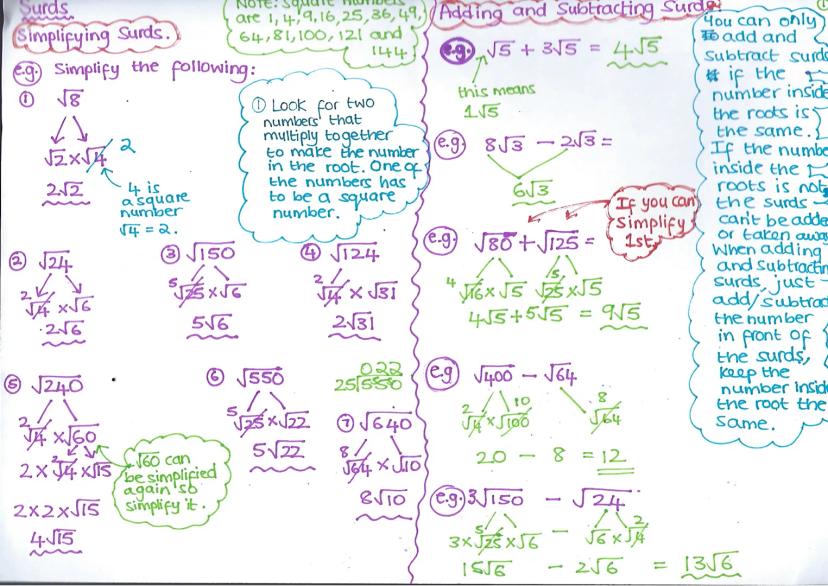 Surds
Simplifying Surds.
Note: Square numbers
are 1, 4, 9, 16, 25, 36, 49,
64, 81, 100, 121 and
144
e.g. Simplify the following:
① √8
√2 × √4 2
2√2
4 is
a square
number
√4 = 2.
① Look for two
numbers that
multiply together
to make the number
in the root. One of
the numbers has
to be a square
number.
② √24
2
√4 × √6
2√6
③ √150
5
√25 × √6
5√6
④ √124
2
√4 × √31
2√31
⑤ √240
2
√4 × √60
2 × √4 × √15
2
2 × 2 × √15
4√15
√60 can
be simplified
again so
simplify it.
⑥ √550
5
√25 × √22
5√22
022
25√550
⑦ √640
8
√64 × √10
8√10
Adding and Subtracting Surds
e.g. √5 + 3√5 = 4√5
this means
1√5
e.g. 8√3 − 2√3 =
6√3
If you can
Simplify
1st.
e.g. √80 + √125 =
4 √16 × √5 5 √25 × √5
4√5 + 5√5 = 9√5
e.g √400 − √64
2 10 8
√4 × √100 √64
20 − 8 = 12
e.g. 3√150 − √24
5 2
3 × √25 × √6 − √6 × √4
15√6 − 2√6 = 13√6
You can only
add and
subtract surds
if the
number inside
the roots is
the same.
If the numbe
inside the
roots is not
the surds
can't be adde
or taken away
When adding
and subtractin
surds, just
add/subtrac
the number
in front of
the surds,
keep the
number inside
the root the
same.